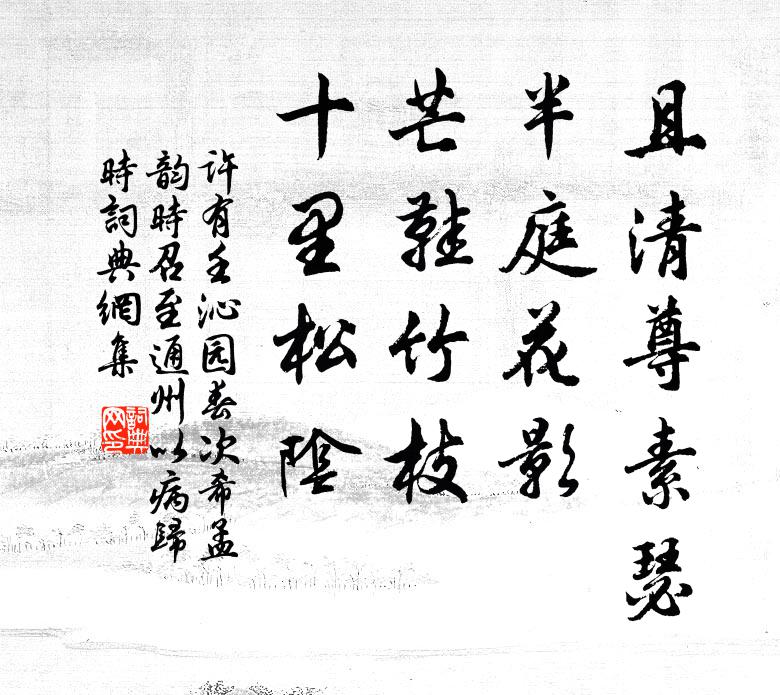 且清尊素瑟
半庭花影
芒鞋竹枝
十里松陰
许有壬沁园春次希孟
韵時召至通州以病歸
時詞典網集
詞典網印